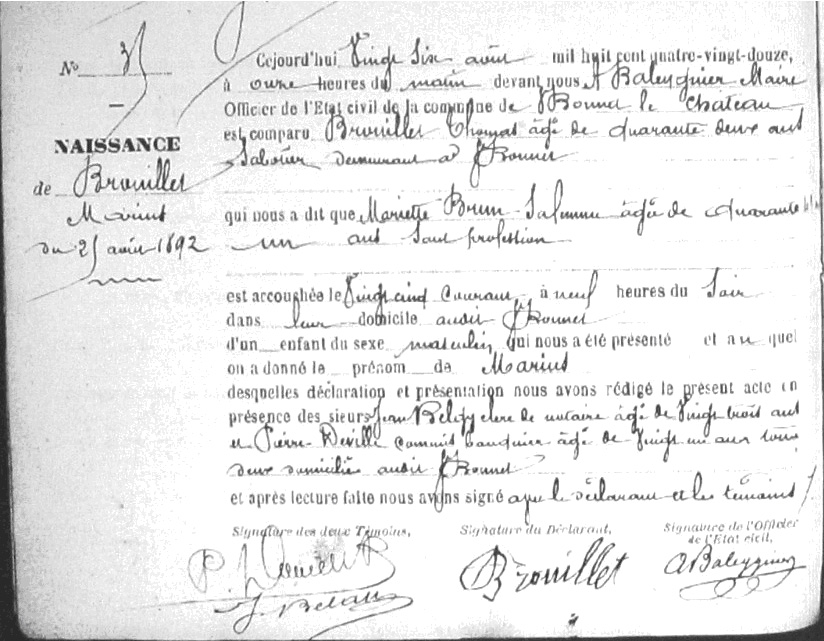 N°
Cejourd'hui Vingt Six août mil huit cent quatre-vingt-douze,
à onze heures du matin devant nous A Baleyguier Maire
Officier de l'Etat civil de la commune de St Bonnet le Chateau
est comparu Brouillet Thomas âgé de quarante deux ans
Sabotier demeurant à St Bonnet
NAISSANCE
de Brouillet
Marius
du 25 août 1892
qui nous a dit que Mariette Brun Sa femme âgée de quarante
un ans sans profession
est accouchée le Vingt cinq courant, à neuf heures du Soir
dans leur domicile audit St Bonnet
d'un enfant du sexe masculin qui nous a été présenté et au quel
on a donné le prénom de Marius
desquelles déclaration et présentation nous avons rédigé le présent acte en
présence des sieurs Jean clerc de notaire âgé de Vingt trois ans
et Pierre Deville commis banquier âgé de Vingt un ans tous
deux domiciliés audit St Bonnet
et après lecture faite nous avons signé avec le déclarant et les témoins
Signature des deux Témoins,
Signature du Déclarant,
Signature de l'Officier
de l'Etat civil,
Brouillet
A Baleyguier